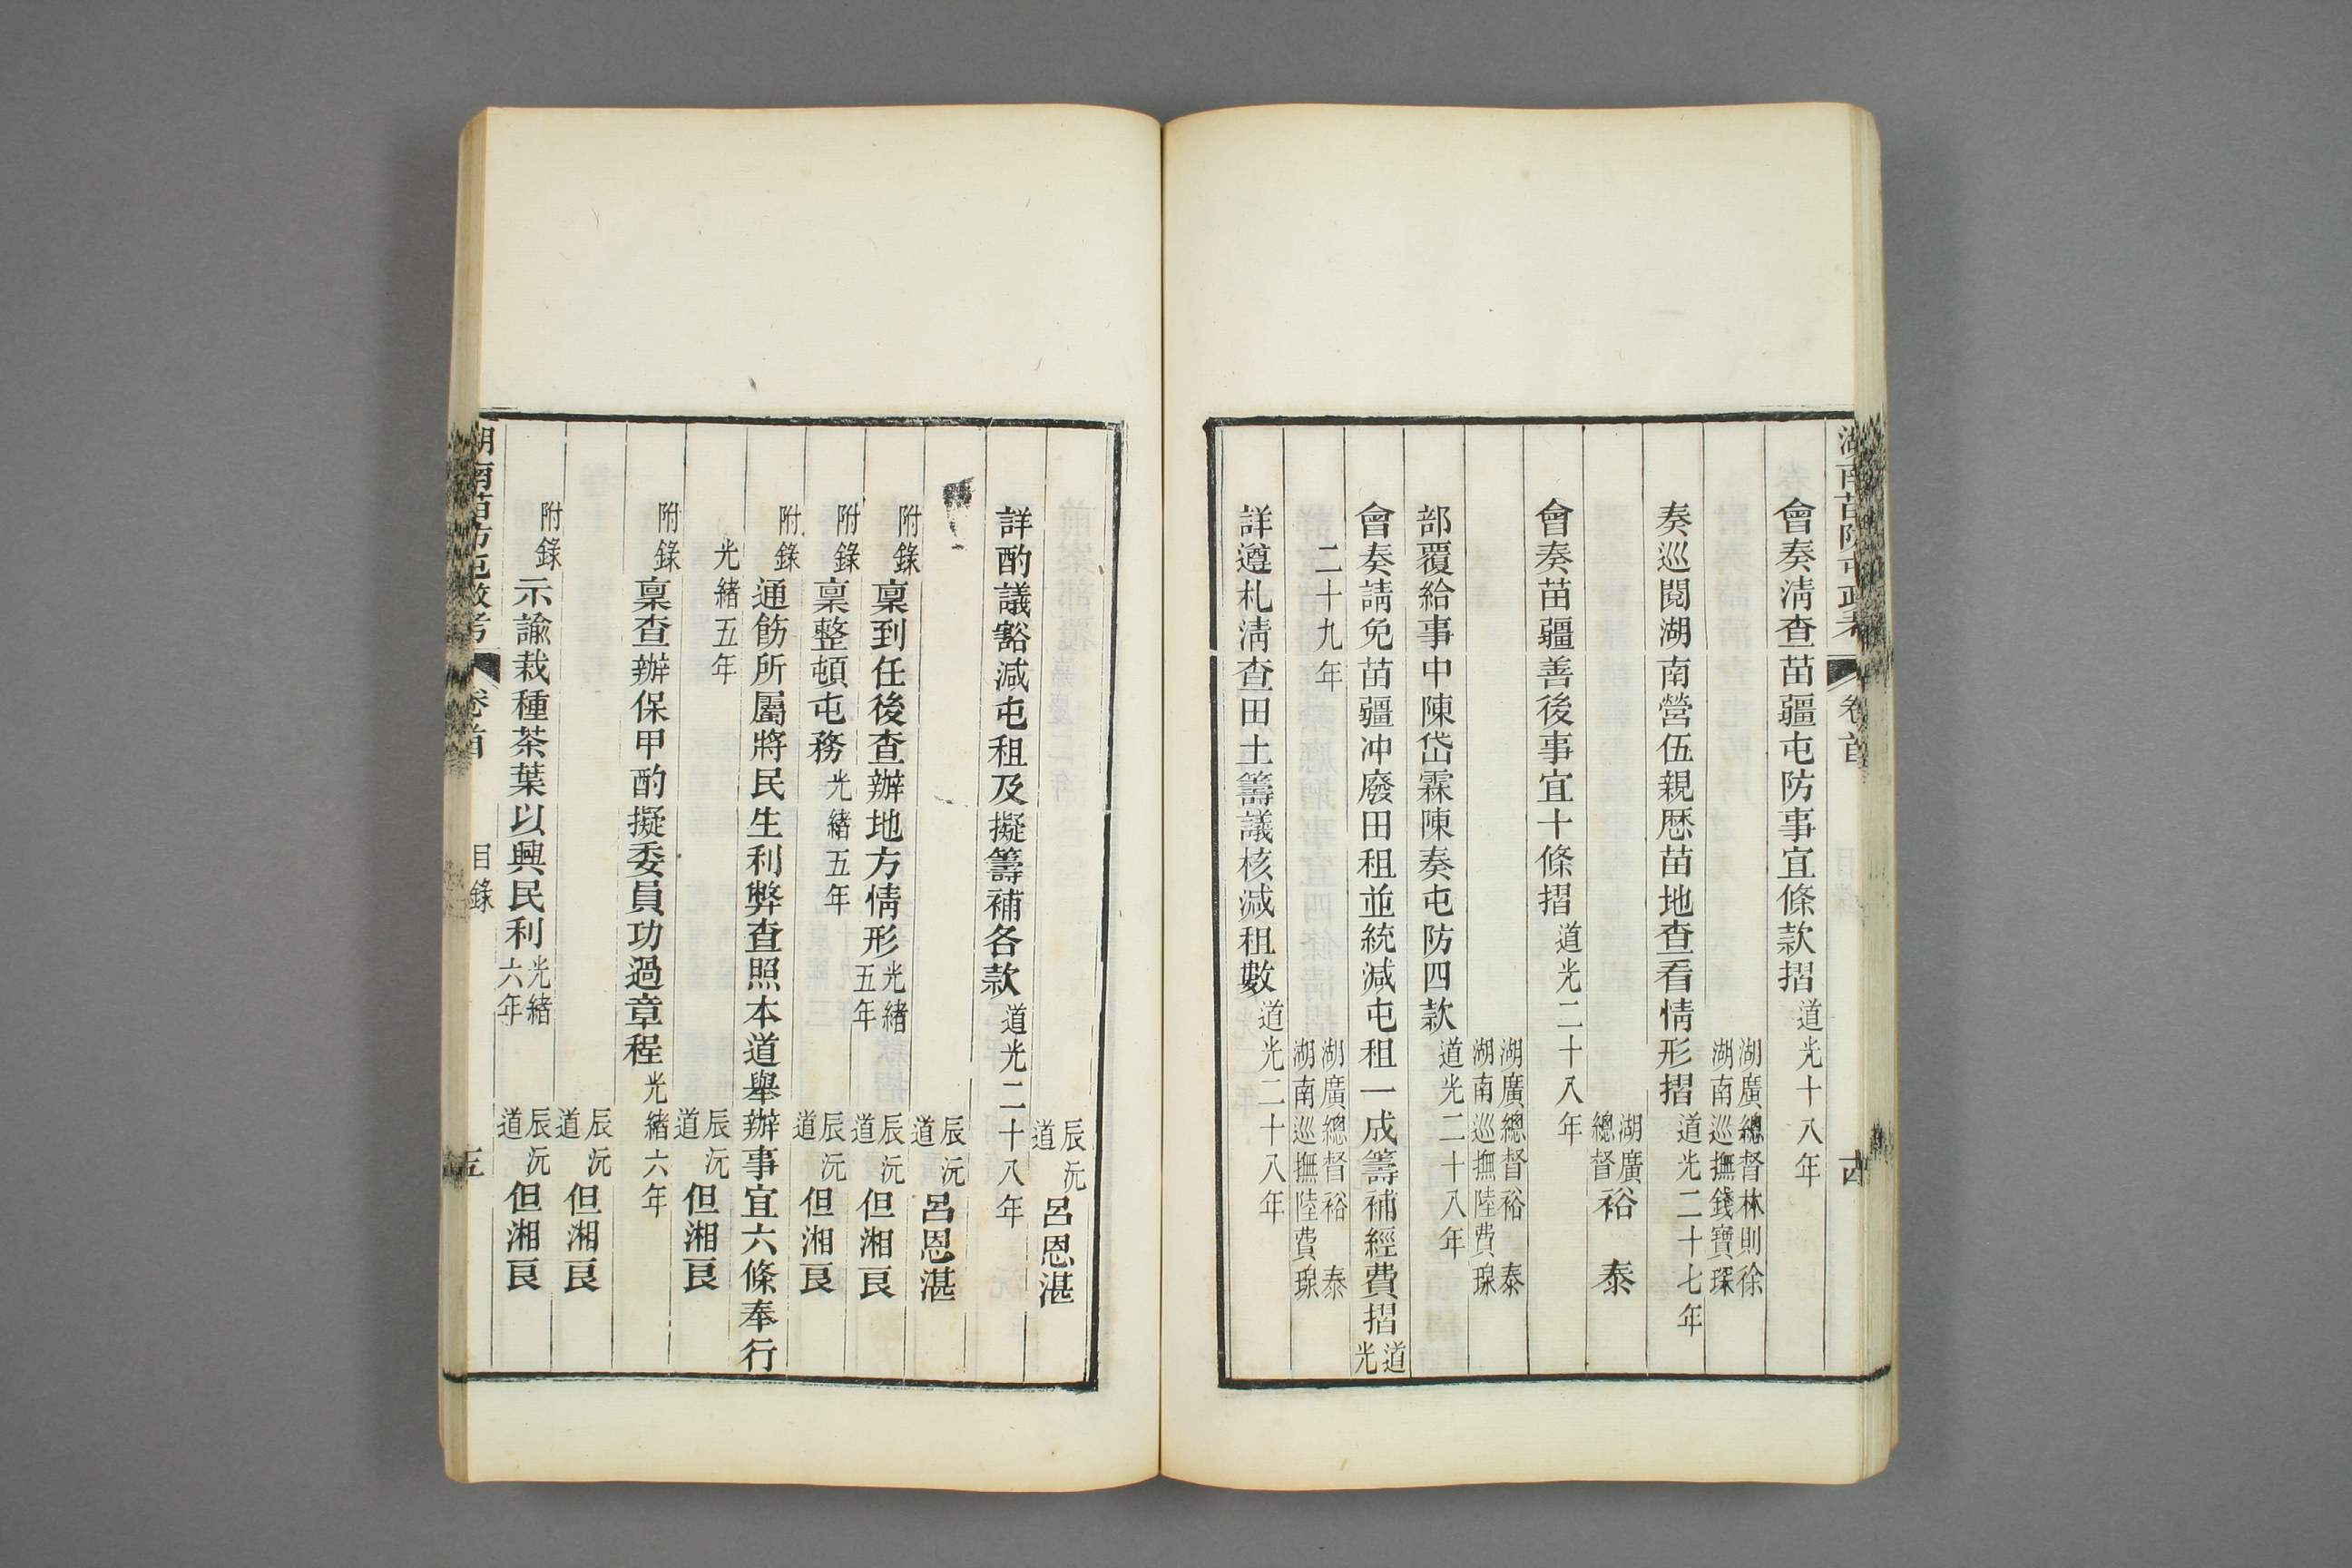 湖南苗防屯政考 卷首 四
會奏清查苗疆屯防事宜條款摺道光十八年
湖廣總督林則徐
湖南巡撫錢寶琛
奏巡閱湖南營伍親厯苗地查看情形摺道光二十七年
湖廣總督裕 泰
會奏苗疆善後事宜十條摺道光二十八年
湖廣總督裕 泰
湖南巡撫陸費瑔
部覆給事中陳岱霖陳奏屯防四款道光二十八年
會奏請免苗疆冲廢田租並統減屯租一成籌補經費摺道光
二十九年
湖廣總督裕 泰
湖南巡撫陸費瑔
詳遵札清查田土籌議核減租數道光二十八年
辰沅道呂恩湛
詳酌議豁減屯租及擬籌補各款道光二十八年
辰沅道呂恩湛
附錄稟到任後查辦地方情形光緒五年
辰沅道但湘良
附錄稟整頓屯務光緒五年
辰沅道但湘良
附錄通飭所屬將民生利弊查照本道舉辦事宜六條奉行
光緒五年
辰沅道但湘良
附錄稟查辦保甲酌擬委員功過章程光緒六年
辰沅道但湘良
附錄示諭栽種茶葉以興民利光緒六年
辰沅道但湘良
湖南苗防屯政考 卷首 目錄